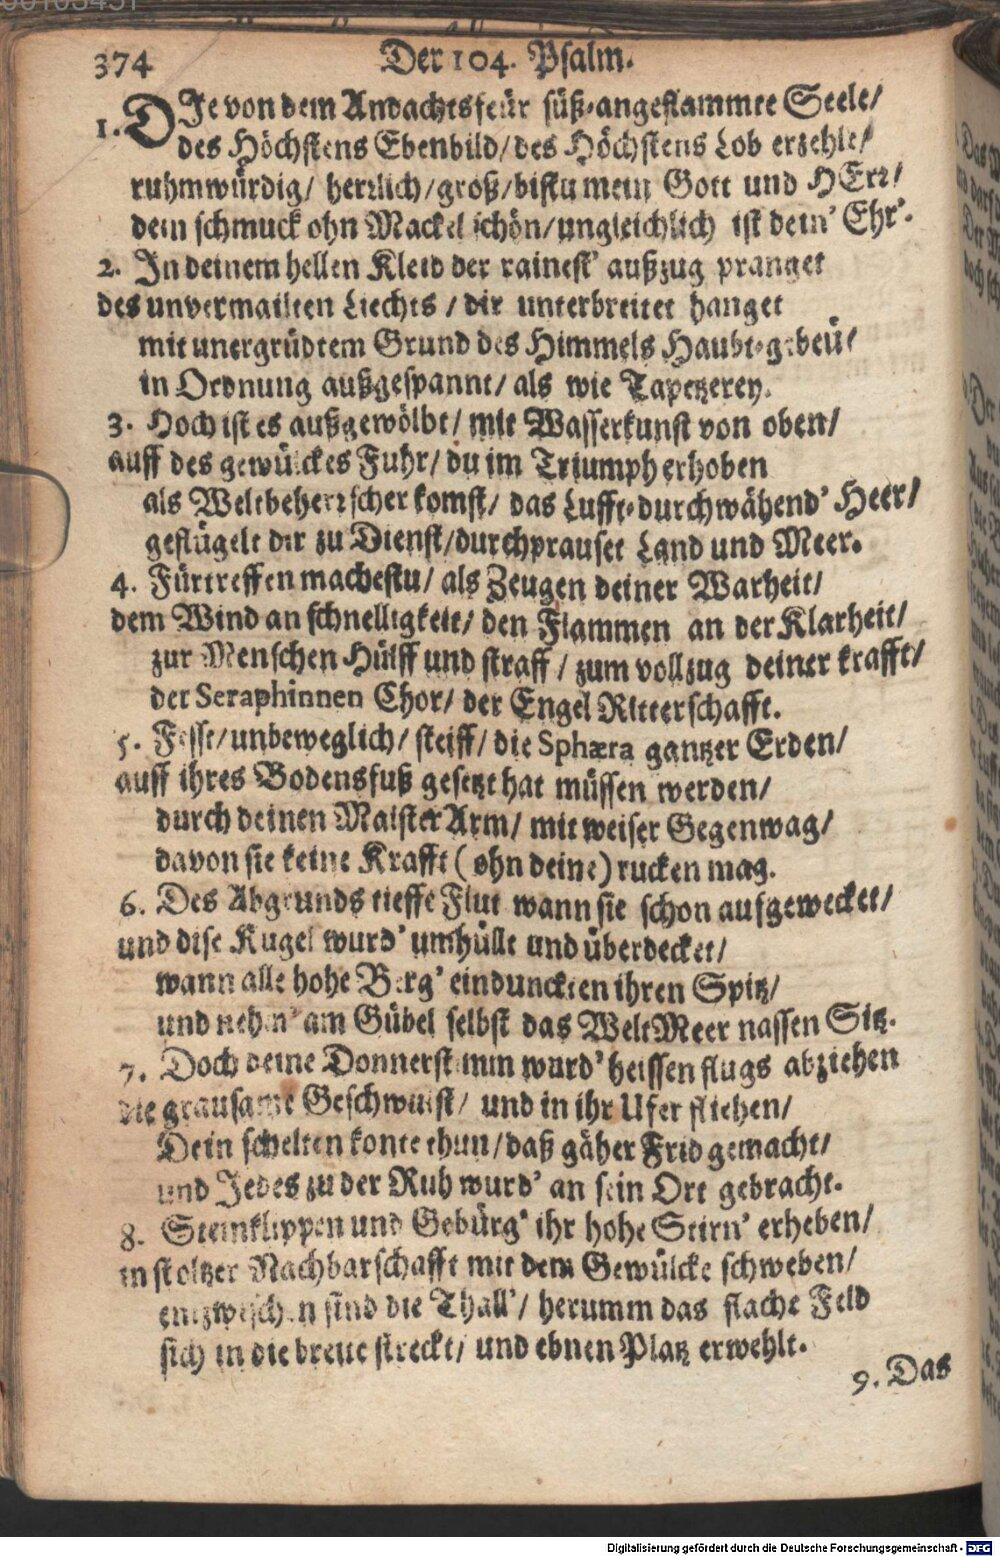 374 Der 104. Psalm.
1. DIe von dem Andachtsfeür süß-angeflammte Seele/
des Höchstens Ebenbild/des Höchstens Lob erzehle/
ruhmwürdig/ herrlich/groß/bistu mein Gott und HErr/
dein schmuck ohn Mackel schön/ungleichlich ist dein' Ehr'.
2. In deinem hellen Kleid der rainest' außzug pranget
des unvermailten Liechts / dir unterbreitet hanget
mit unergrüdtem Grund des Himmels Haubt-gebeü/
in Ordnung außgespannt/ als wie Tapetzerey.
3. Hoch ist es außgewölbt/ mit Wasserkunst von oben/
auff des gewülckes Fuhr/ du im Triumph erhoben
als Weltbeherrscher komst/ das Lufft-durchwähend' Heer/
geflügelt dir zu Dienst/durchprauset Land und Meer.
4. Fürtreffen machestu/ als Zeugen deiner Warheit/
dem Wind an schnelligkeit/ den Flammen an der Klarheit/
zur Menschen Hülff und straff / zum vollzug deiner krafft/
der Seraphinnen Chor/ der Engel Ritterschafft.
5. Fesst/unbeweglich/ steiff/ die Sphæra gantzer Erden/
auff ihres Bodensfuß gesetzt hat müssen werden/
durch deinen Maister Arm/ mit weiser Gegenwag/
davon sie keine Krafft (ohn deine) rucken mag.
6. Des Abgrunds tieffe Flut wann sie schon aufgewecket/
und dise Kugel wurd' umhüllt und überdecket/
wann alle hohe Berg' einduncken ihren Spitz/
und nehm' am Gübel selbst das WeltMeer nassen Sitz.
7. Doch deine Donnerstimm wurd' heissen flugs abziehen
die grausame Geschwulst/ und in ihr Ufer fliehen/
Dein schelten konte thun/daß gäher Frid gemacht/
und Jedes zu der Ruh wurd' an sein Ort gebracht.
8. Steinklippen und Gebürg' ihr hohe Stirn' erheben/
in stoltzer Nachbarschafft mit dem Gewülcke schweben/
entzwischen sind die Thall'/ herumm das flache Feld
sich in die breite streckt/ und ebnen Platz erwehlt.
9. Das
Digitalisierung gefördert durch die Deutsche Forschungsgemeinschaft - DFG